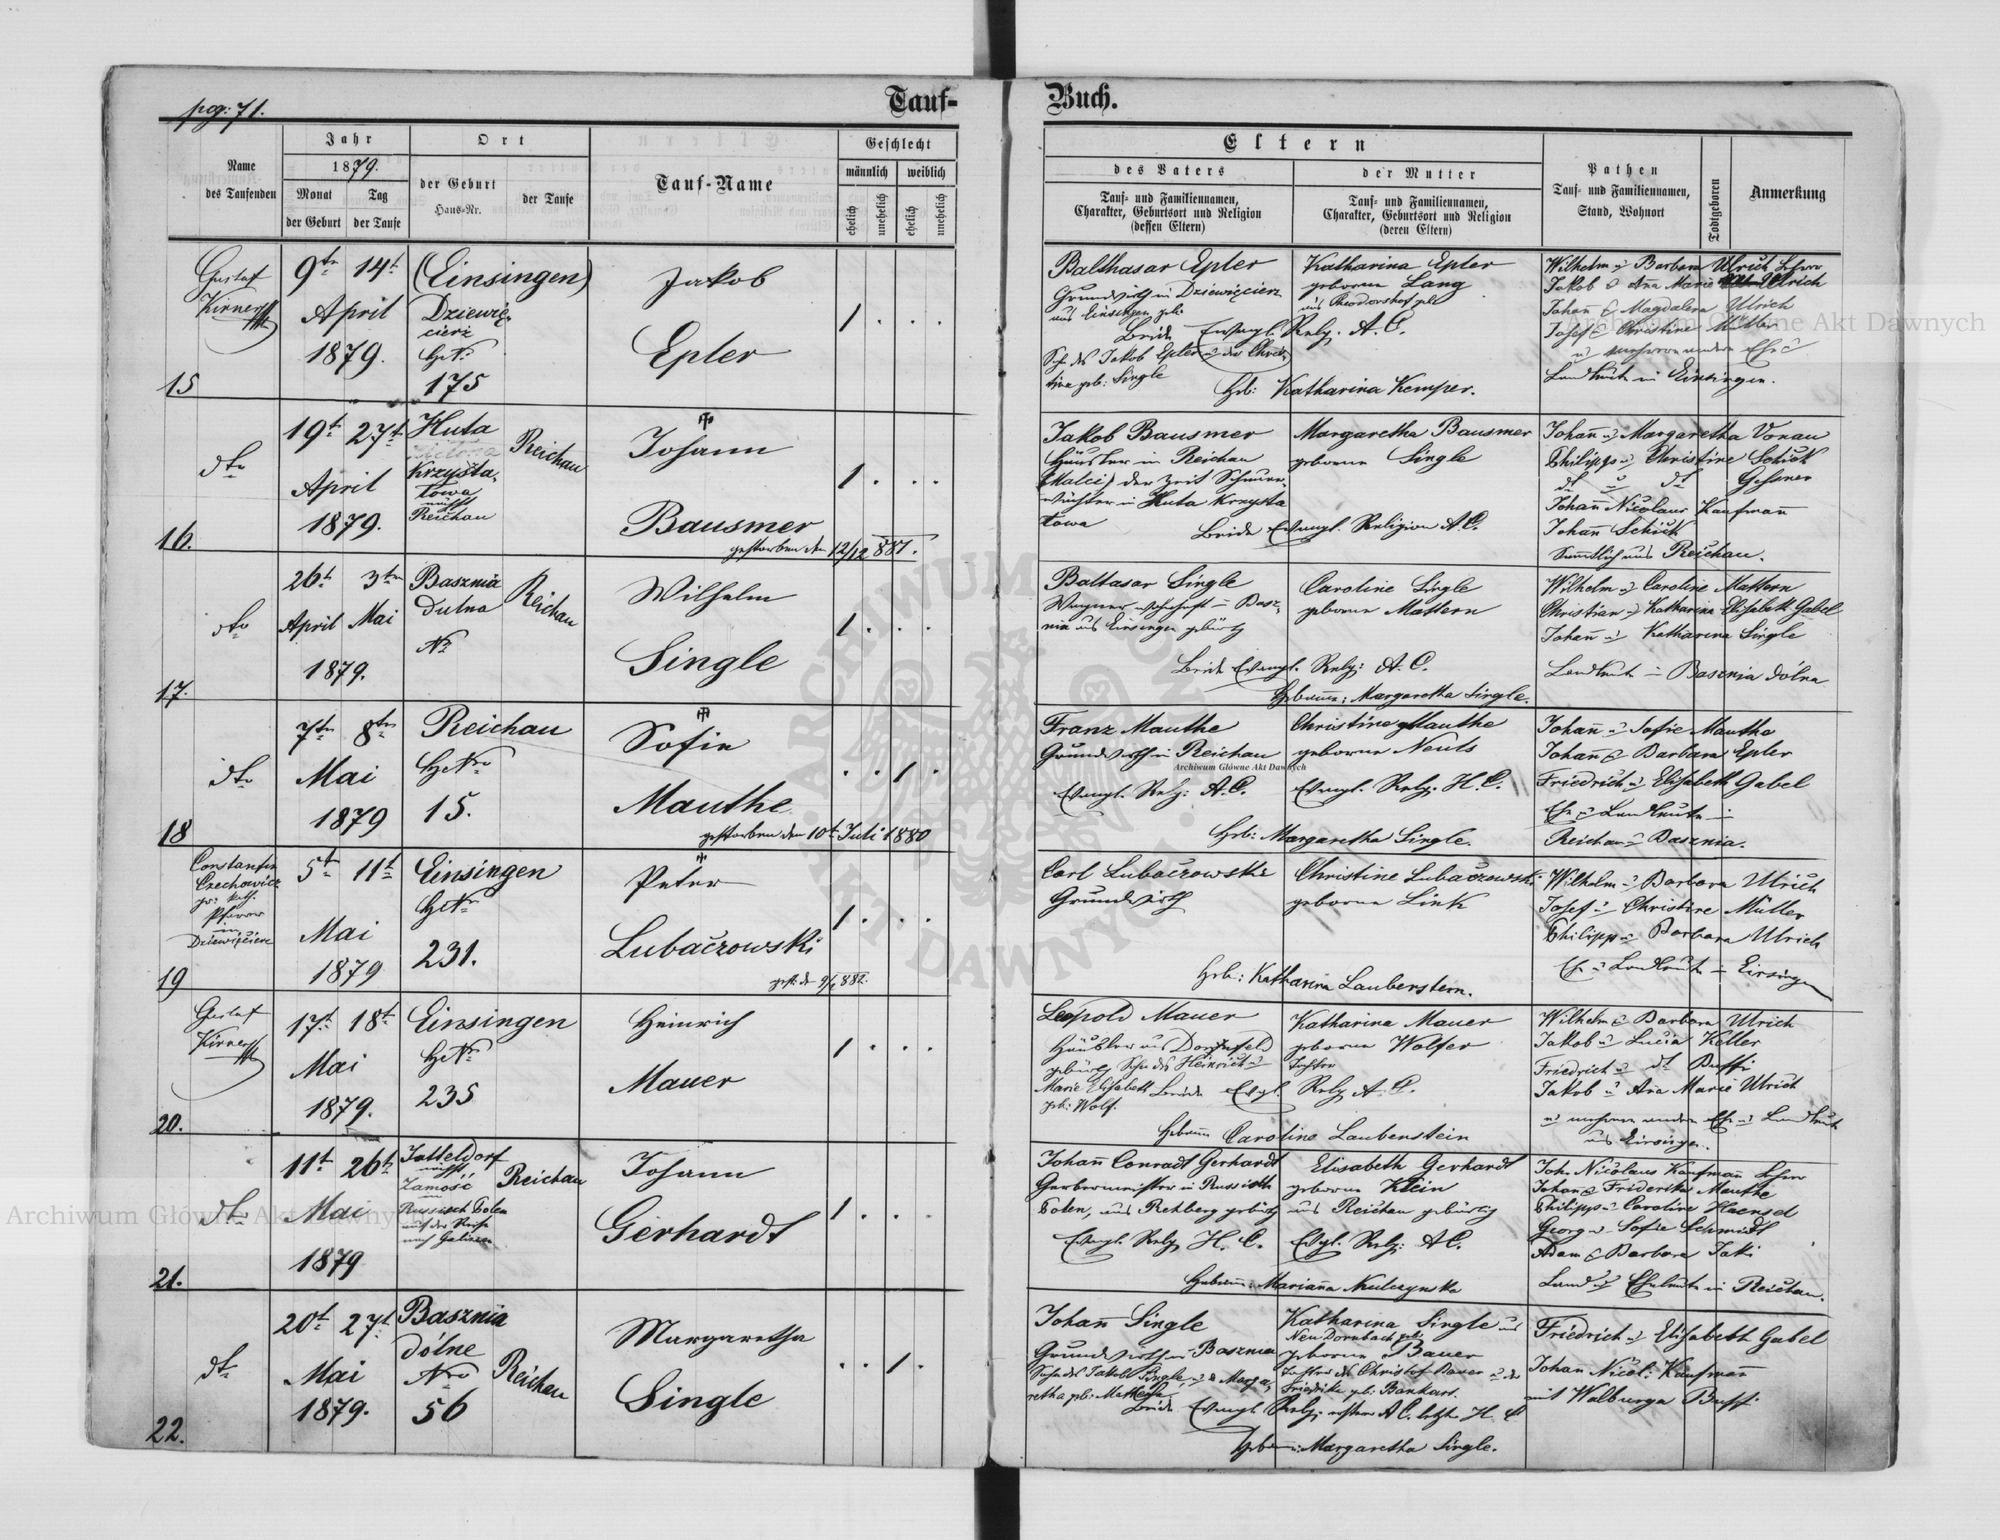 pag: 71.
Tauf-
Buch.
Name
des Taufenden
Jahr
1879.
Monat
der Geburt
Tag
der Taufe
Ort
der Geburt
Haus-Nr.
der Taufe
Tauf-Name
Geschlecht
männlich
weiblich
ehelich
unehelich
ehelich
unehelich
Eltern
des Vaters
Tauf- und Familiennamen,
Charakter, Geburtsort und Religion
(dessen Eltern)
der Mutter
Tauf- und Familiennamen,
Charakter, Geburtsort und Religion
(deren Eltern)
Pathen
Tauf- und Familiennamen,
Stand, Wohnort
Todtgeboren
Anmerkung
15
Gustaf
Kirner
9te 14t
April
1879.
(Einsingen)
Dziewię-
cierz
HNr
175
Jakob
Epler
1 . . .
Balthasar Epler
Grundwirth in Dziewięcierz
aus Einsingen geb:
Sohn des Jakob Epler u der Chris-
tine geb: Single
Katharina Epler
geborne Lang
Beide Evangl. Relg. A. C.
Heb: Katharina Kemper.
Wilhelm u Barbara Ulrich Lehrer
Jakob u Ana Marie Ulrich
Johann u Magdalena Ulrich
Josef u Christine Müller
u mehrere andere Ehe u
Landleute in Einsingen.
16.
dto
19t 27t
April
1879.
Huta
Krzyszta-
towa
nächst
Reichau
Reichau
Johann
Bausmer
gestorben den 12/12 881.
1 . . .
Jakob Bausmer
Häusler in Reichau
(Malci) der Zeit
in Huta Krzyszta
towa
Margaretha Bausmer
geborne Single
Beide Evangl. Religion A. C.
Johann u Margaretha Vonau
Philipp u Christine Schick
dt u dt Gessner
Johann Nicolaus Kaufmann
Johann Schick
Sämmtlich aus Reichau.
17.
dto
26t 3ten
April Mai
1879.
Basznia
dolna
Nr
Reichau
Wilhelm
Single
1 . . .
Baltasar Single
Wagner wohnhaft in Basz-
nia aus Einsingen gebürtig
Caroline Single
geborne Mattern
Beide Evangl. Relg: A. C.
Hebamm: Margaretha Single.
Wilhelm u Caroline Mattern
Christian u Katharina Elisabeth Gabel
Johann u Katharina Single
Landleute in Basznia dólna
18
dto
7ten 8ten
Mai
1879
Reichau
HNro
15.
Sofie
Mauthe
gestorben den 10t Juli 1880
. . 1 .
Franz Mauthe
Grundwirth in Reichau
Evangl. Relg: A. C.
Christine Mauthe
geborne Neuls
Evangl. Relg. H. C.
Heb: Margaretha Single.
Johann u Sofie Mauthe
Johann u Barbara Epler
Friedrich u Elisabeth Gabel
Ehe u Landleute in
Reichau u Basznia.
19
Constantin
Czechowicz
gr: kath.
Pfarrer
in
Dziewięcierz
5t 11t
Mai
1879
Einsingen
HNr
231.
Peter
Lubaczowski
gest: d 9/ 882.
1 . . .
Carl Lubaczowski
Grundwirth
Christine Lubaczowski
geborne Link
Heb: Katharina Lauberstern.
Wilhelm u Barbara Ulrich
Josef u Christine Müller
Philipp u Barbara Ulrich
Ehe u Landleute in Einsingen
20.
Gustaf
Kirner
17t 18t
Mai
1879.
Einsingen
HNr
235
Heinrich
Mauer
1 . . .
Leopold Mauer
Häusler aus Dornfeld
gebürtig, Sohn des Heinrich u
Marie Elisabeth
geb: Wolf.
Katharina Mauer
geborne Wolfer
Tochter
Beide Evgl. Relg A. C.
Hebamm Caroline Laubenstein
Wilhelm u Barbara Ulrich
Jakob u Lucia Keller
Friedrich u dt Buffi
Jakob u Ana Marie Ulrich
u mehrere andere Ehe u Landleute
aus Einsingen.
21.
dto
11t 26t
Mai
1879
Jatteldorf
nächst
Zamość
in
Russisch Polen
auf der Reise
nach Galizien
Reichau
Johann
Gerhardt
1 . . .
Johann Conradt Gerhardt
Gerbermeister in Russisch
Polen, aus Rehberg gebürtig
Evangl. Relg H. C.
Elisabeth Gerhardt
geborne Klein
aus Reichau gebürtig
Evgl. Relg: A C.
Hebamm: Marianna Kulczynska
Joh. Nicolaus Kaufmann Lehrer
Johann u Friderika Mauthe
Philipp u Caroline Haensel
Georg u Sofie Schmidt
Adam u Barbara Jaki
Land u Eheleute in Reichau.
22.
dto
20t 27t
Mai
1879.
Basznia
dólne
Nro
56
Reichau
Margaretha
Single
. . 1 .
Johann Single
Grundwirth in Basznia
Sohn des Jakob Single, u d Marga-
retha geb: Matheis
Katharina Single aus
Neu Dornbach geb:
geborne Bauer
Tochter des Christof Bauer u der
Friedrike geb: Bankart.
Beide Evangl Relg. erstere A C. letzt H. C
Hebamm: Margaretha Single.
Friedrich u Elisabeth Gabel
Johan Nicol: Kaufmann
mit Walburga Buffi
ARCHIWUM GŁÓWNE AKT DAWNYCH
Archiwum Główne Akt Dawnych
Archiwum Główne Akt Dawnych
Archiwum Główne Akt Dawnych